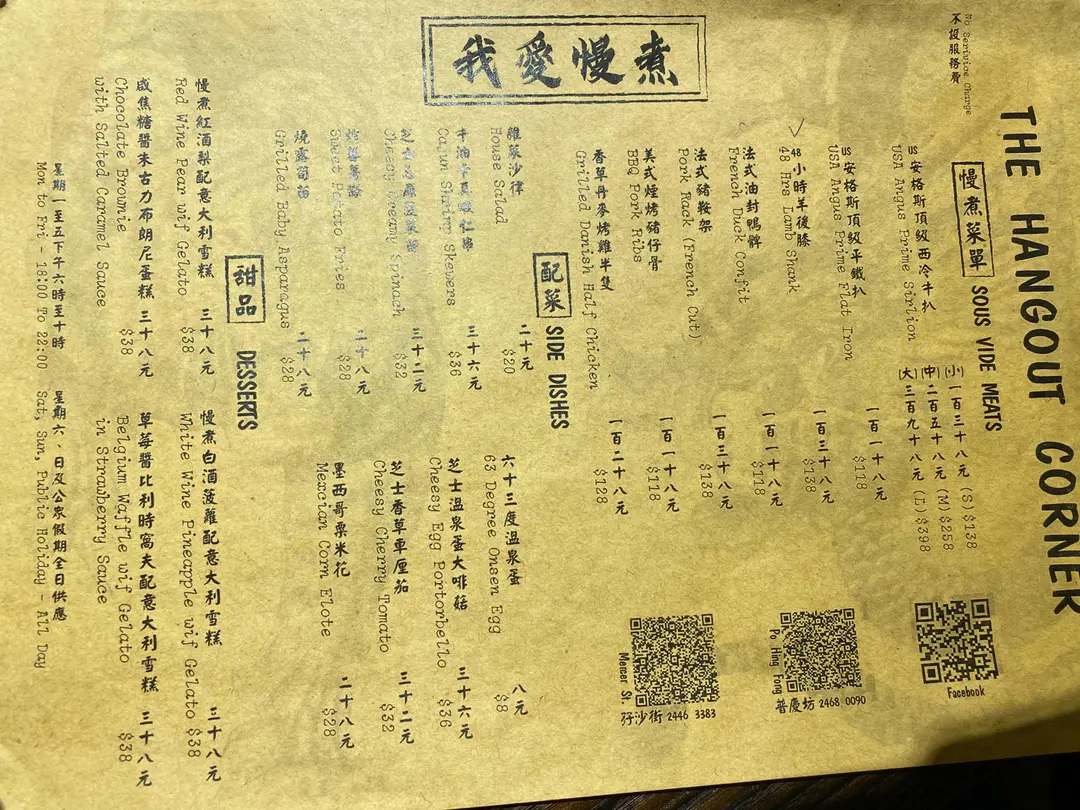 No Serivice Charge
不設服務費
THE HANGOUT CORNER
慢煮菜單 SOUS VIDE MEATS
US安格斯頂級西冷牛扒 (小)一百三十八元 (S)$138
USA Angus Prime Sirlion (中)二百五十八元 (M)$258
(大)三百九十八元 (L)$398
US安格斯頂級平鐵扒 一百一十八元
USA Angus Prime Flat Iron $118
48小時羊後膝 一百三十八元
48 Hrs Lamb Shank $138
法式油封鴨髀 一百一十八元
French Duck Confit $118
法式豬鞍架 一百三十八元
Pork Rack (French Cut) $138
美式煙烤豬仔骨 一百一十八元
BBQ Pork Ribs $118
香草丹麥烤雞半隻 一百二十八元
Grilled Danish Half Chicken $128
Facebook
Po Hing Fong
普慶坊 2468 0090
Mercer St.
孖沙街 2446 3383
我愛慢煮
配菜 SIDE DISHES
雜菜沙律 二十元
House Salad $20
牛油 蝦仁串 三十六元
Cajun Shrimp Skewers $36
芝士 菠菜 三十二元
Cheesy Creamy Spinach $32
炸番薯條 二十八元
Sweet Potato Fries $28
燒露筍苗 二十八元
Grilled Baby Asparagus $28
六十三度溫泉蛋 八元
63 Degree Onsen Egg $8
芝士溫泉蛋大啡菇 三十六元
Cheesy Egg Portorbello $36
芝士香草車厘茄 三十二元
Cheesy Cherry Tomato $32
墨西哥粟米花 二十八元
Mexcian Corn Elote $28
甜品 DESSERTS
慢煮紅酒梨配意大利雪糕 三十八元
Red Wine Pear wif Gelato $38
咸焦糖醬朱古力布朗尼蛋糕 三十八元
Chocolate Brownie $38
with Salted Caramel Sauce
慢煮白酒菠蘿配意大利雪糕 三十八元
White Wine Pineapple wif Gelato $38
草莓醬比利時窩夫配意大利雪糕 三十八元
Belgium Waffle wif Gelato $38
in Strawberry Sauce
星期一至五下午六時至十時 星期六、日及公眾假期全日供應
Mon to Fri - 18:00 To 22:00 Sat, Sun, Public Holiday - All Day